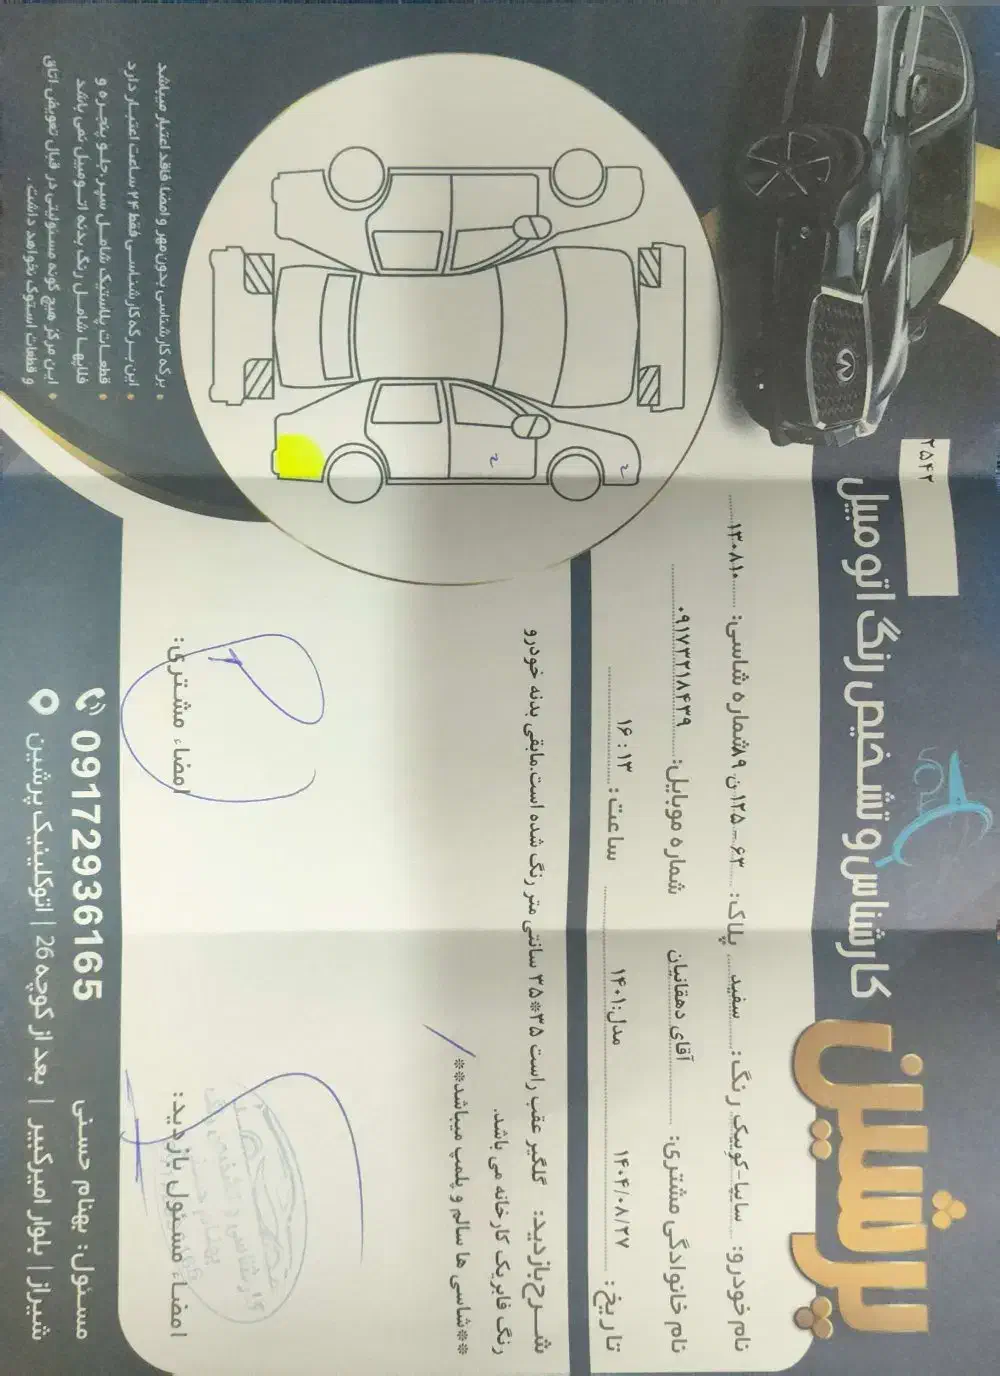 پرشین
کارشناس و تشخیص رنگ اتومبیل
۲۵۴۲
نام خودرو: سایپا-کوییک رنگ: سفید پلاک: ۶۳-۱۲۵ن۸۹ شماره شاسی: ۱۳۰۸۱۰
نام خانوادگی مشتری: آقای دهقانیان شماره موبایل: ۰۹۱۷۳۲۱۸۴۳۹
تاریخ: ۱۴۰۴/۰۸/۲۷ مدل:۱۴۰۱ ساعت: ۱۶:۱۳
شـرح بازدید: گلگیر عقب راست ۳۵*۳۵ سانتی متر رنگ شده است.مابقی بدنه خودرو
رنگ فابریک کارخانه می باشد.
**شاسی ها سالم و پلمپ میباشد**
امضاء مسئول بازدید: امضاء مشتری:
برکه کارشناسی بدون مهر و امضا فاقد اعتبار میباشد
این برکه کارشناسی فقط ۲۴ ساعت اعتبار دارد
قطعـات پلاستیک شامل سپر جلـو پنجـره و
قلابها شامـل رنگ بدنه اتـومبیل نمی باشد
این مرکز هیچ گونه مسئولیتی در قبال تعویض اتاق
و قطعات استوک نخواهد داشت.
مسئول: بهنام حسنی 09172936165
شیراز | بلوار امیرکبیر | بعد از کوچه 26 | اتوکلینیک پرشین